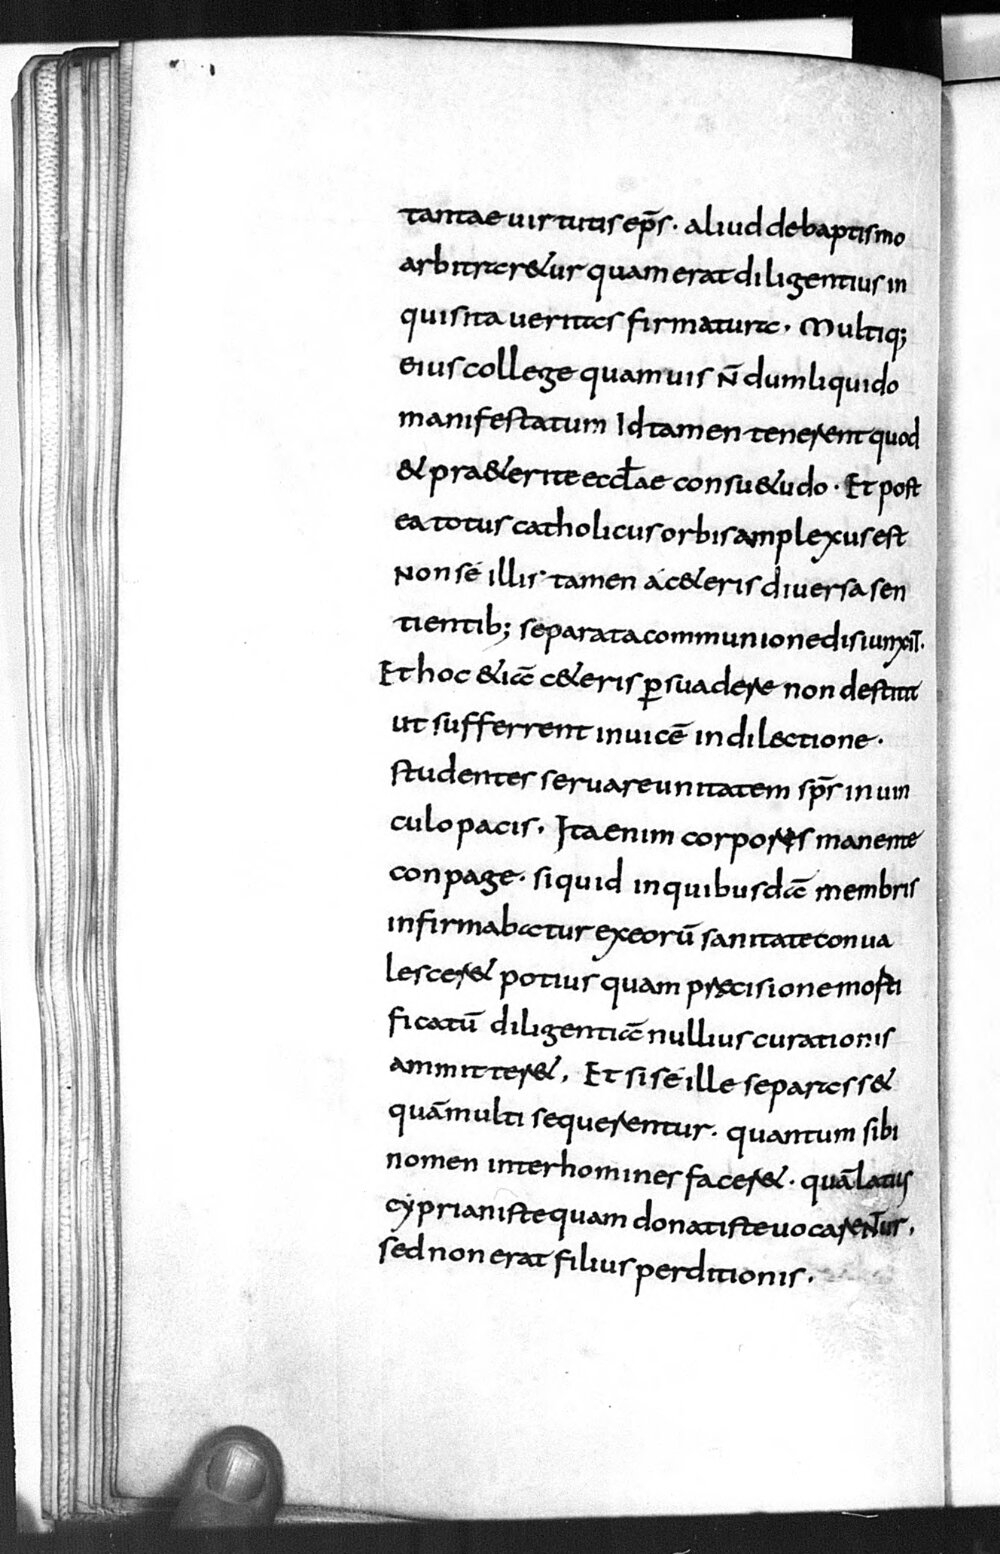 tantae uirtutis ep̄s · aliud de baptismo
arbitraretur quam erat diligentius in
quisita ueritas firmatura · Multiq;
eius college quamuis n̄ dum liquido
manifestatum Id tamen tenerent quod
& pra&erite eccl̄ae consu&udo · Et post
ea totus catholicus orbis amplexus est
Non sé illis tamen a c&eris diuersa sen
tientib; separata communione disiunxit ·
Et hoc &iā c&eris p̱suadere non destitit
ut sufferrent inuicē in dilectione ·
studentes seruare unitatem sp̄s in uin
culo pacis · Ita enim corporis manente
conpage · siquid in quibusdā membris
infirmabatur ex eorū sanitate conua
lescer& potius quam precisione morti
ficatū diligentiā nullius curationis
ammitter& , Et si sé ille separass&
quā multi sequerentur · quantum sibi
nomen inter homines facer& · quā latius
cyprianiste quam donatiste uocarentur ,
sed non erat filius perditionis ·